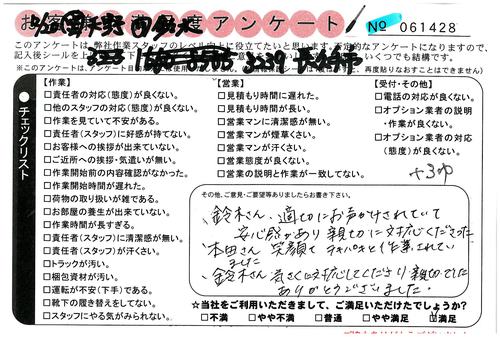 お客様満足度アンケート
№ 061428
このアンケートは、弊社作業スタッフのレベル向上に役立てたいと思います。否定的なアンケートになりますので、
●チェックリスト
【作業】
□責任者の対応(態度)が良くない。
□他のスタッフの対応(態度)が良くない。
□作業を見ていて不安がある。
□責任者(スタッフ)に好感が持てない。
□お客様への挨拶が出来ていない。
□ご近所への挨拶・気遣いが無い。
□作業開始前の内容確認がなかった。
□作業開始時間が遅れた。
□荷物の取り扱いが雑である。
□お部屋の養生が出来ていない。
□作業時間が長すぎる。
□責任者(スタッフ)に清潔感が無い。
□責任者(スタッフ)が汗くさい。
□トラックが汚い。
□梱包資材が汚い。
□運転が不安(下手)である。
□靴下の履き替えをしてない。
□スタッフにやる気がみられない。
【営業】
□見積もり時間に遅れた。
□見積もり時間が長い。
□営業マンに清潔感が無い。
□営業マンが煙草くさい。
□営業マンが汗くさい。
□営業態度が良くない。
□営業の説明と作業が一致してない。
【受付・その他】
□電話の対応が良くない。
□オプション業者の説明
・作業が良くない。
□オプション業者の対応
(態度)が良くない。
その他、ご意見・ご要望等ありましたらお書き下さい。
、鈴木さん、適切にお声かけされていて
安心感があり親切に対応くださった
、本田さん 笑顔で テキパキと作業されてい
ました
、鈴木さん 気さくに対応してくださり親切でした
ありがとうございました。
☆当社をご利用いただきまして、ご満足いただけたでしょうか?
□不満 □やや不満 □普通 □やや満足 □満足